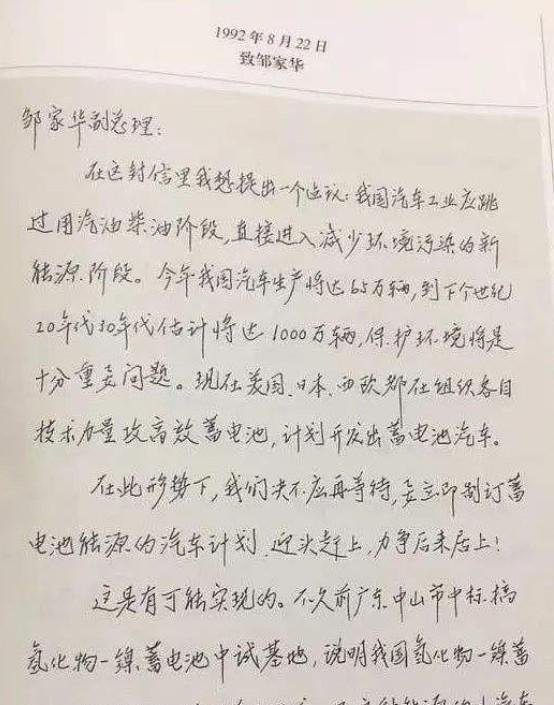 1992年8月22日
致邹家华
邹家华副总理：
在这封信里我想提出一个建议：我国汽车工业应跳
过用汽油柴油阶段，直接进入减少环境污染的新
能源阶段。今年我国汽车生产将达65万辆，到下个世纪
20年代30年代估计将达1000万辆，保护环境将是
十分重要问题。现在美国、日本、西欧都在组织各自
技术力量攻高效蓄电池，计划开发出蓄电池汽车。
在此形势下，我们决不应再等待，要立即制订蓄
电池能源的汽车计划，迎头赶上，力争后来居上！
这是有可能实现的。不久前广东中山市中标搞
氢化物—镍蓄电池中试基地，说明我国氢化物—镍蓄